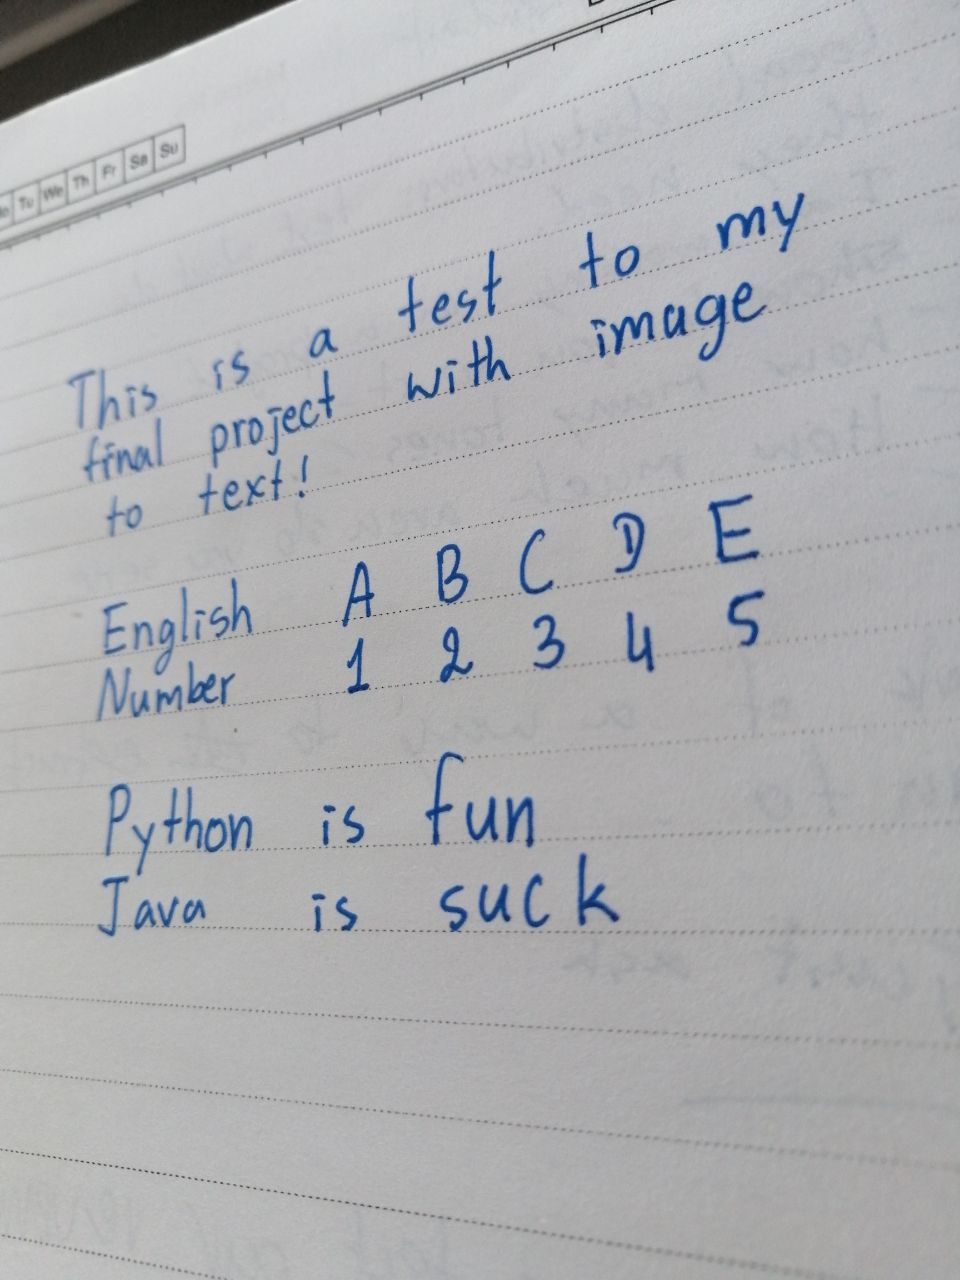 Tu We Th Fr Sa Su
This is a test to my
final project with image
to text!
English A B C D E
Number 1 2 3 4 5
Python is fun
Java is suck